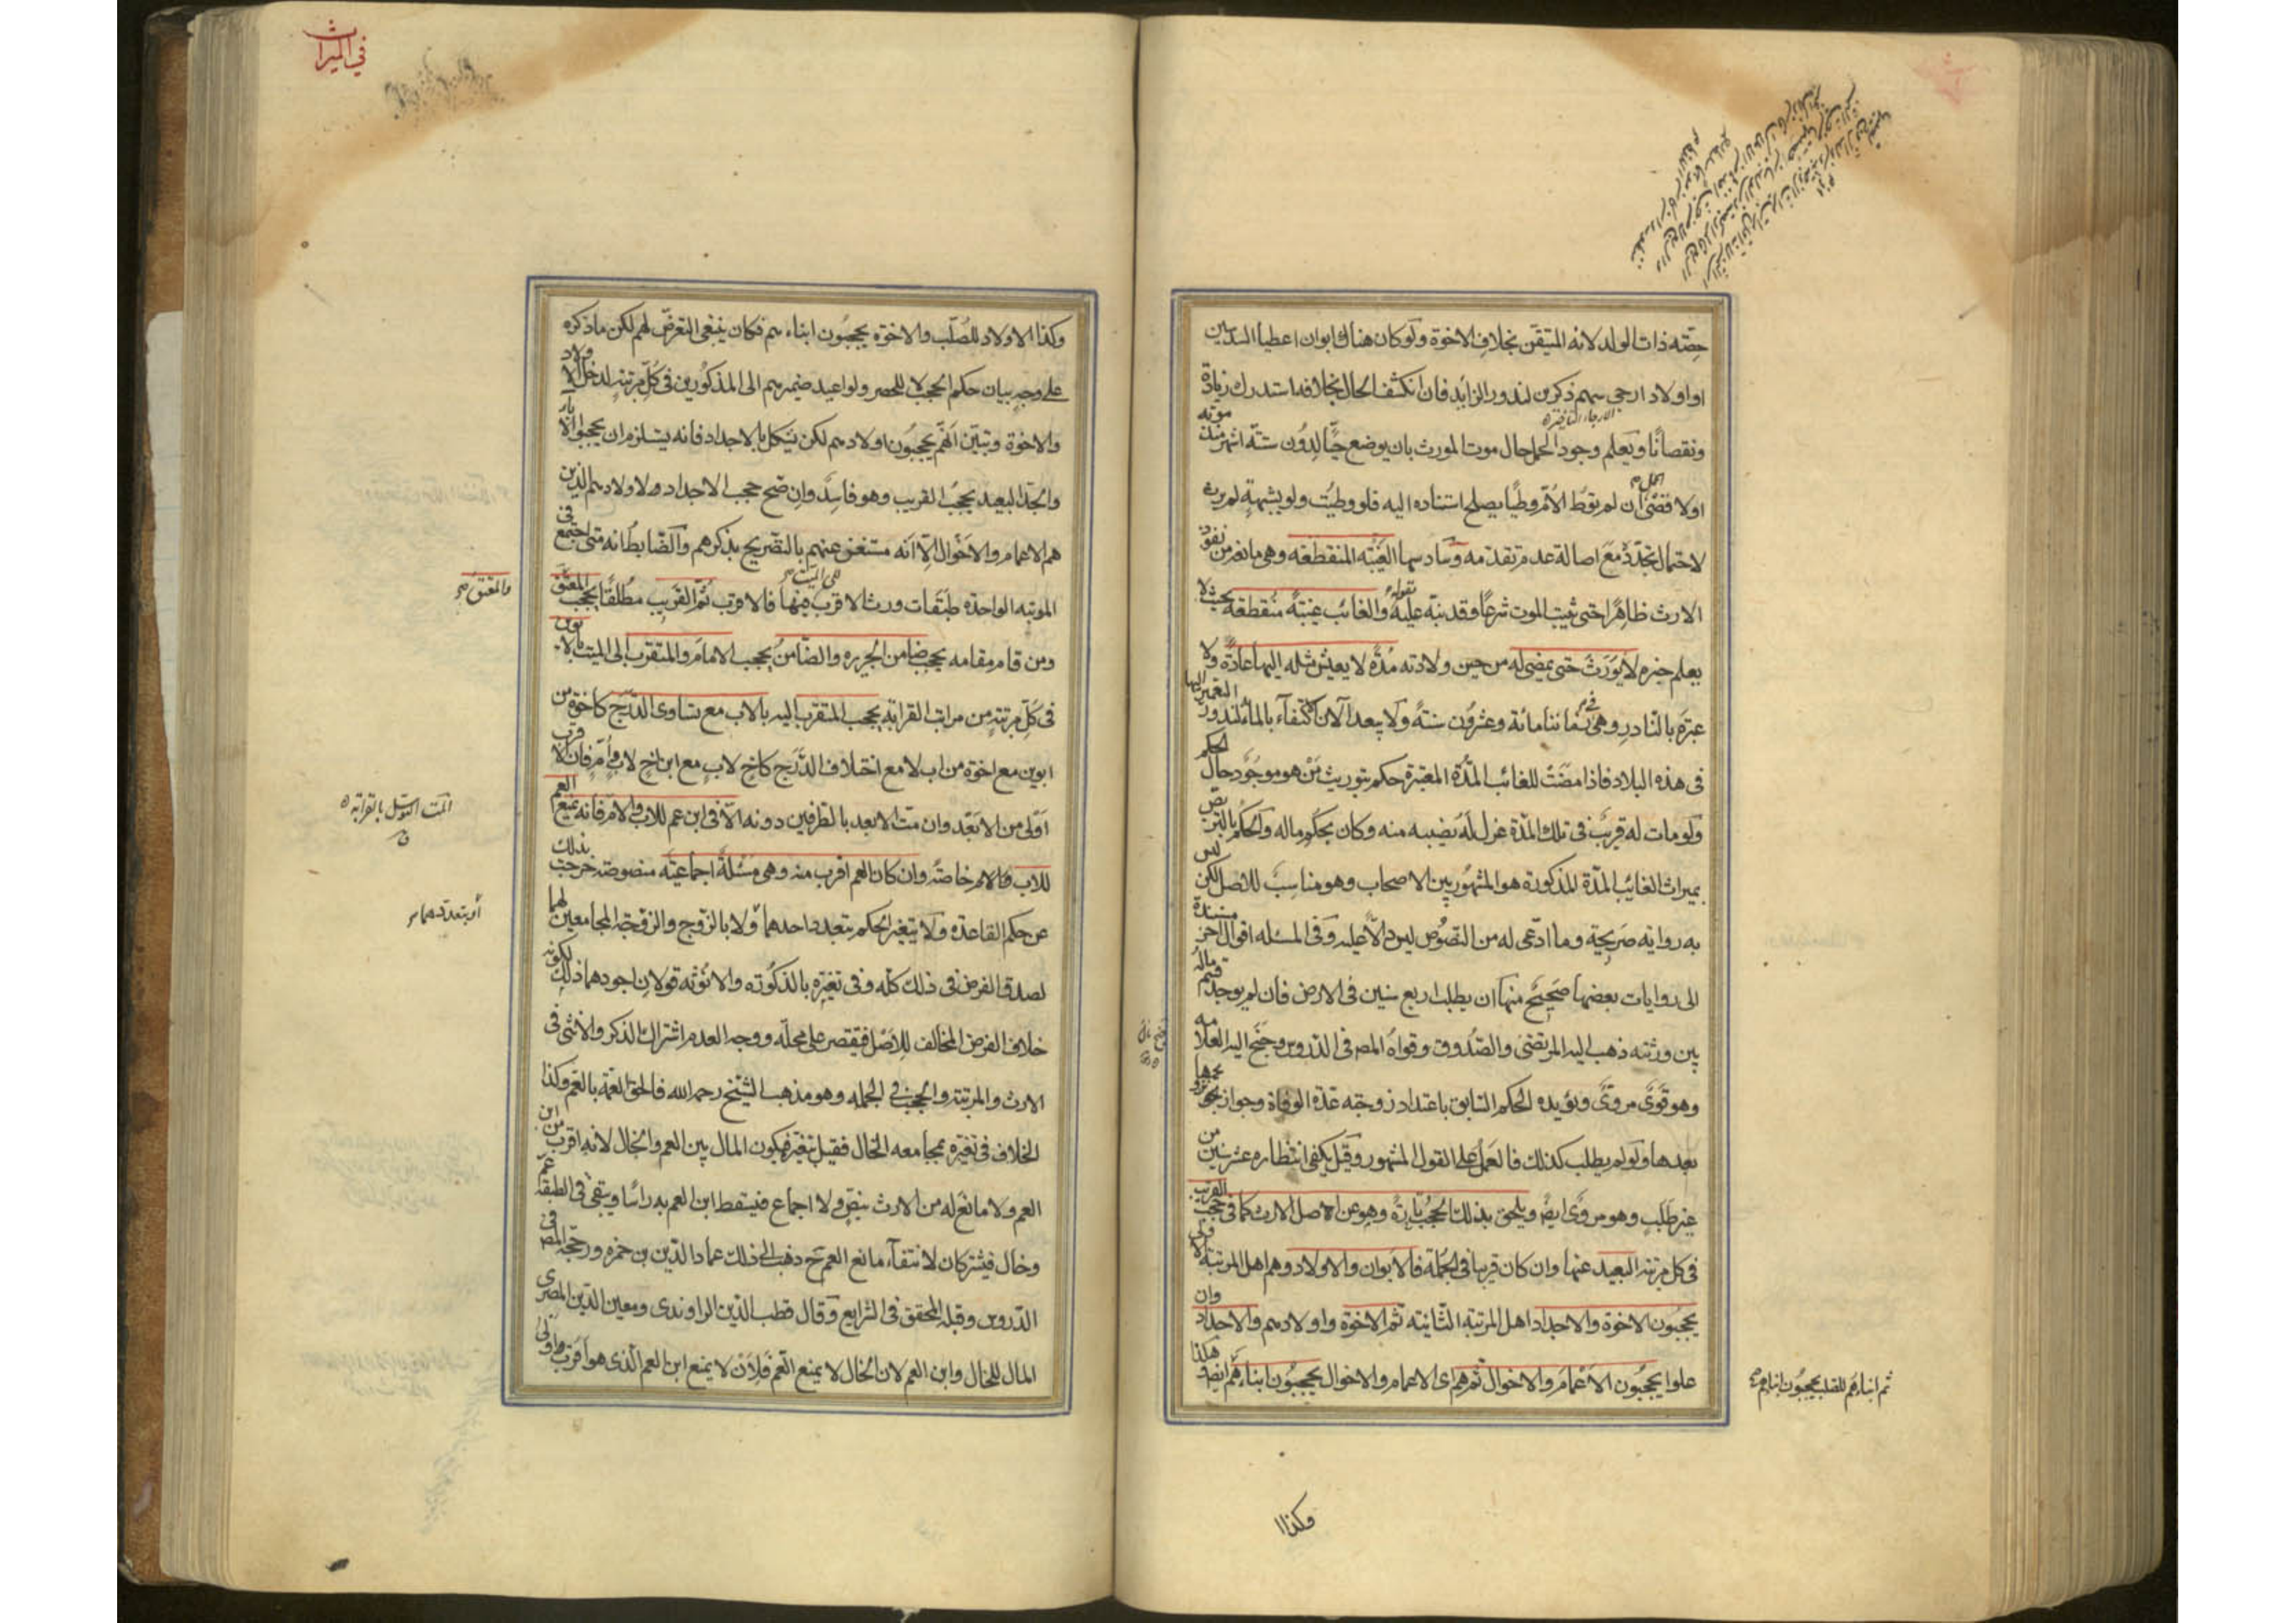 حصّته ذات الولد لانه المتيقّن بخلاف الاخوة ولو كان هناك ابوان اعطيا السدسين
او اولاد ارجى سهم ذكرين لندور الزايد فان انكشف الحال بخلافه استدرك زيادة
الارجاء التاخير
ونقصانًا ويعلم وجود الحمل حال موت المورث بان يوضع حيًّا لدون ستّة اشهر منذ موته
اولا قصى ان لم توطَ الأمّ وطيًا يصلح استناده اليه فلو وطئت ولو بشبهةٍ لم يرث
لاحتمال تجدّده مع اصالة عدم تقدمه وسادسها الغيبة المنقطعة وهى مانعة من نفوذ
الارث ظاهرًا حتى يثبت الموت شرعًا وقد نبّه عليه بقوله والغائب غيبةً منقطعة بحيث لا
يعلم خبره لا يُورَث حتى يمضى له من حين ولادته مُدّة لا يعيش مثله اليها عادةً ولا
عبرة بالنّادر وهى فى زماننا مائة وعشرون سنةً ولا يبعد الآن الاكتفاء بالمائة لندور التعمير اليها
فى هذه البلاد فاذا مضَت للغائب المدّة المعتبرة حكم بتوريث مَن هو موجود حال الحكم
ولو مات له قريبٌ فى تلك المدّة عزل له نصيبه منه وكان بحكم ماله والحكم بالتربّص
بميراث الغائب المدّة المذكورة هو المشهور بين الاصحاب وهو مناسبٌ للاصل لكن ليس
به رواية صريحة وما ادّعى له من النّصوص ليس دالّا عليه وفى المسئلة اقوال اخر مستندة
الى روايات بعضها صحيحٌ منها ان يطلب اربع سنين فى الارض فان لم يوجد قسم ماله
بين ورثته ذهب اليه المرتضى والصّدوق وقواه المص فى الدّروس وجنح اليه العلامة
وهو قوىّ مروىّ ويؤيده الحكم السّابق باعتداد زوجته عدّة الوفاة وجواز تزويجها
بعدها ولو لم يطلب كذلك فالعمل على القول المشهور وقيل يكفى انتظاره عشر سنين من
غير طلبٍ وهو مروىّ ايضًا ويلحق بذلك الحجب تارةً وهو عن اصل الارث كما فى حجب القريب
فى كل مرتبة البعيد عنها وان كان قريبا فى الجملة فالابوان والاولاد وهم اهل المرتبة الاولى
يحجبون الاخوة والاجداد اهل المرتبة الثانية ثم الاخوة واولادهم والاجداد وان
علوا يحجبون الأعمام والاخوال ثم هم اى الاعمام والاخوال يحجبون ابناءهم
ثم ابناؤهم للصلب يحجبون ابناء
وكذا ا
فى الميراث
وكذا الاولاد للصُلب والاخوة يحجبُون ابناءهم فكان ينبغى التعرّض لهم لكن ما ذكره
على وجهِ بيان حكم الحجب لا للحصر ولو اعيد ضميرهم الى المذكورين فى كلّ مرتبةٍ لدخل الاولاد
والاخوة وتبيّن انهم يحجبُون اولادهم لكن يشكل بالاجداد فانه يستلزم ان يحجبوا الآباء
والجدّ البعيد يحجبُ القريب وهو فاسدٌ وان صحّ حجب الاجداد لاولادهم الذين
هم الاعمام والاخوال الّا انه مستغنى عنهم بالتّصريح بذكرهم والضّابط انه متى اجتمع فى
المرتبة الواحدة طبقات ورث الاقرب الى الميّت فيها فالاقرب ثم القريب مطلقًا يحجب المعتق
والمعتق
ومن قام مقامه يحجب ضامن الجريرة والضّامن يحجب الامام والمتقرب الى الميت بالابوين
فى كلّ مرتبةٍ من مراتب القرابة يحجب المتقرب اليه بالاب مع تساوى الدّرج كاخوةٍ من
ابوين مع اخوة من اب لا مع اختلاف الدّرج كاخٍ لابٍ مع ابن اخٍ لابٍ وأمّ فان الاقرب
اولى من الابعد وان متّ الابعد بالطرفين دونه الّا فى ابن عم للاب والام فانه يمنع العم
المتّ التوسّل بالقرابة
للاب والام خاصّة وان كان العم اقرب منه وهى مسئلة اجماعيّة منصوصة خرجت بذلك
عن حكم القاعدة ولا يتغيّر الحكم بتعدد احدهما ولا بالزّوج والزّوجة المجامعين لهما
أو بتعددهما
لصدق الفرض فى ذلك كلّه وفى تغيّره بالذكورة والانوثة قولان اجودهما ذلك لكونه
خلاف الفرض المخالف للاصل فيقتصر على محلّه ووجه العدم اشتراك الذكر والانثى فى
الارث والمرتبة والحجب فى الجملة وهو مذهب الشّيخ رحمه الله فالحق العمّة بالعم وكذا
الخلاف فى تغيّره بمجامعة الخال فقيل يتغيّر فيكون المال بين العم والخال لانه اقرب من ابن
العم ولا مانع له من الارث بنصّ ولا اجماع فيسقط ابن العم به راسًا ويبقى فى الطبقة عم
وخال فيشتركان لانتفاء مانع العم ح ذهب الى ذلك عماد الدّين بن حمزه ورجّحه المص فى
الدّروس وقبله المحقق فى الشرايع وقال قطب الدّين الراوندى ومعين الدّين المصرى
المال للخال وابن العم لان الخال لا يمنع العم فلأن لا يمنع ابن العم الّذى هو اقرب اولى